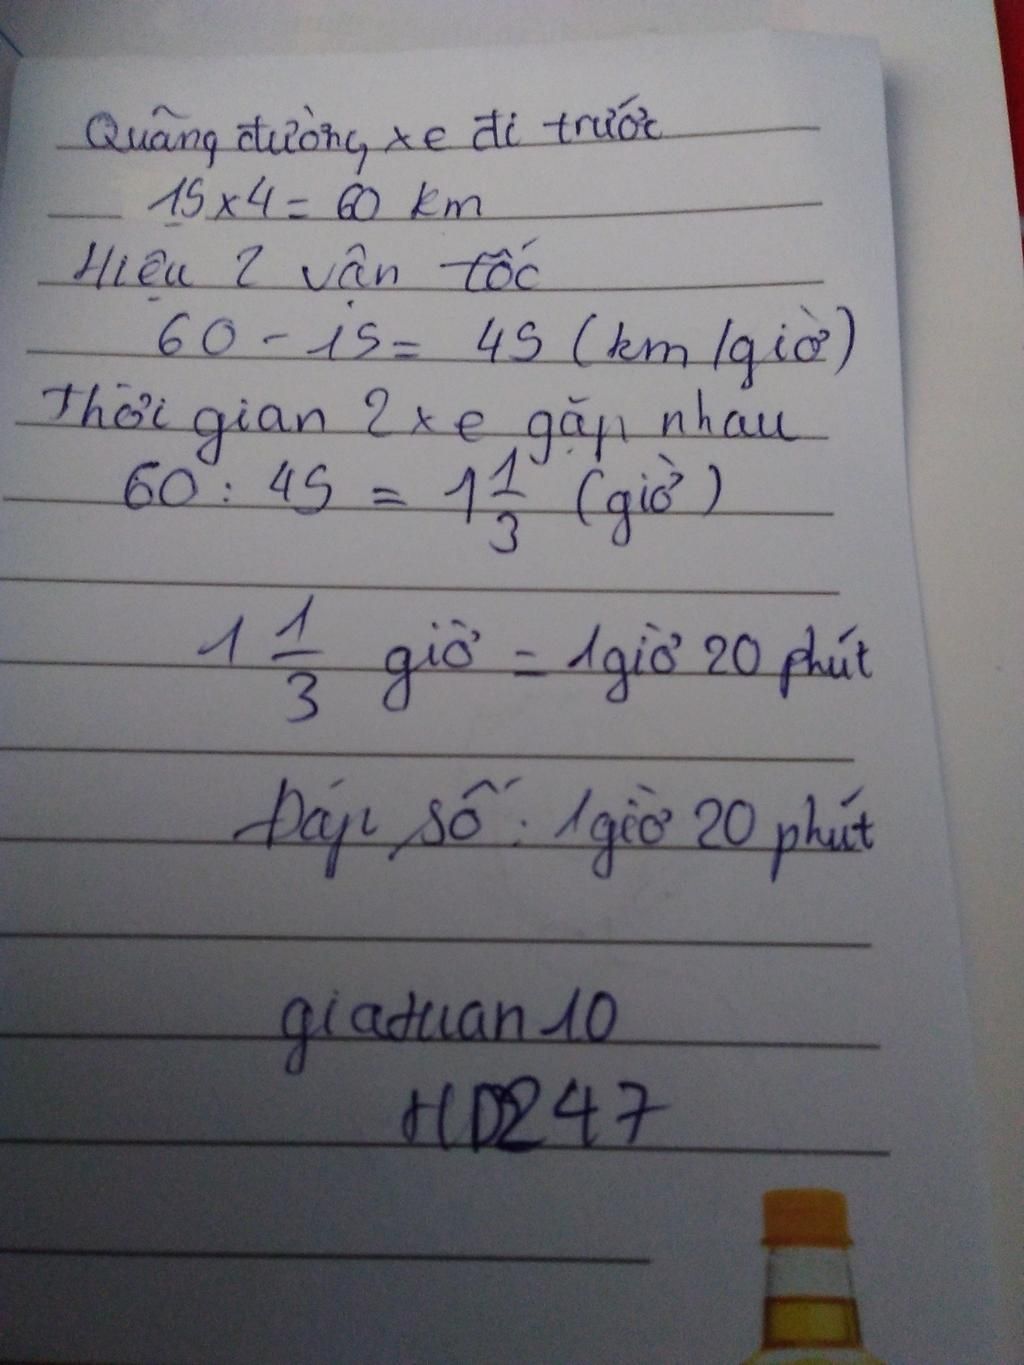 Quãng đường xe đi trước
15 x 4 = 60 km
Hiệu 2 vận tốc
60 - 15 = 45 (km/giờ)
Thời gian 2 xe gặp nhau
60 : 45 = 1 1/3 (giờ)
1 1/3 giờ = 1 giờ 20 phút
Đáp số : 1 giờ 20 phút
giatuan10
HD247